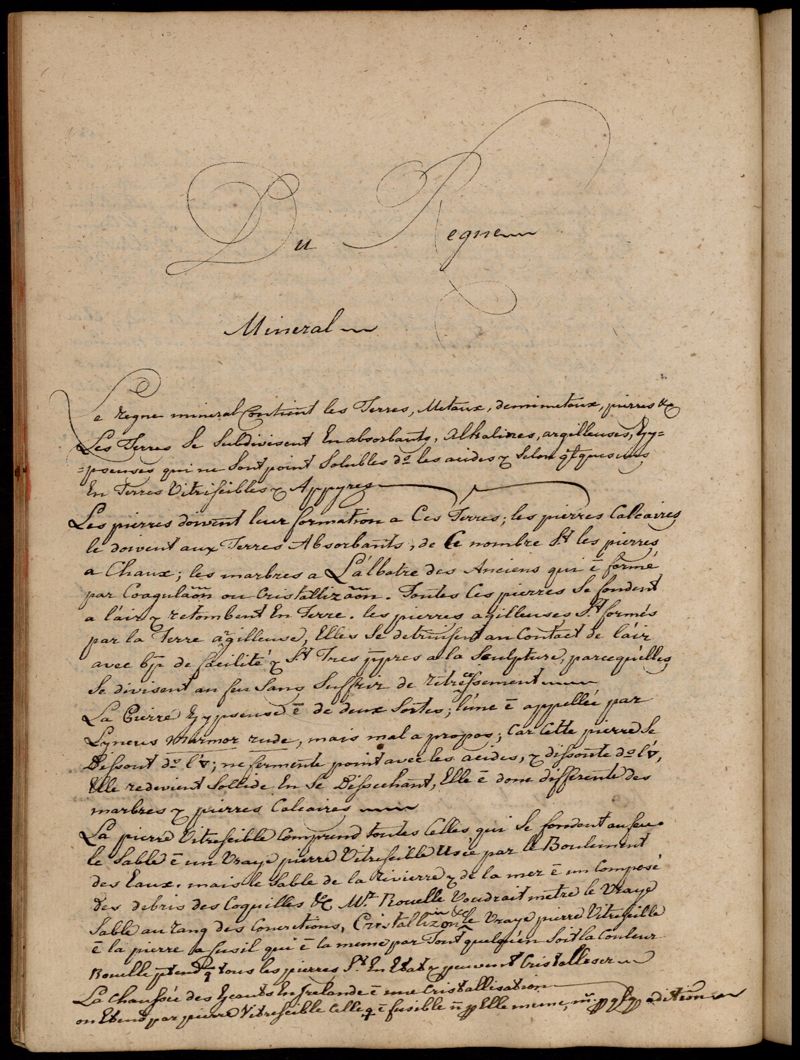 Du Regne
Mineral
Le regne mineral Contient les Terres, Metaux, demimetaux, pierres &c
Les Terres Se Subdivisent En absorbants, Alkalines, argilleuses, Gy=
=pseuses qui ne Sont point Solubles ds. les acides & Selon
En Terres Vitrifcibles & Appyres
Les pierres doivent leur formation a Ces Terres; les pierres Calcaires
le doivent aux Terres Absorbants, de Ce nombre St les pierres
a Chaux; les marbres a L'albatre des Anciens qui ē formé
par Coagulaōn ou Cristallizaōn. Toutes Ces pierres Se fondent
a l'air & retombent En Terre. les pierres agilleuses St formés
par la Terre argilleuse, Elles Se detruisent au Contact de l'air
avec bp de facilité & St Tres ppres a la Sculpture, parcequ'elles
Se divisent au feu Sans Suffrir de retressement
La Pierre Gypseuse ē de deux Sortes; l'une ē appellée par
Lyneus Marmor rude, mais mal a propos; Car Cette pierre Se
Dissout ds. l'▽; ne fermente point avec les acides, & dissoute ds. l'▽,
Elle redevient Sollide En Se Dissechant, Elle ē donc differente des
marbres & pierres Calcaires
La pierre Vitrescible Comprend toutes Celles qui Se fondent au feu.
le Sable ē un Vraye pierre Vitrescible Usée par le Roulement
des Eaux. mais le Sable de la rivierre & de la mer ē un Composé
des debris des Coquilles &c Mr. Rouelle Voudrait metre le Vraye
Sable au rang des Concretions, Cristallizōn &c le Vraye pierre Vitrescible
ē la pierre a fusil qui ē la meme par Tout quelqu'en Soit la Couleur
Rouelle ptend q tous les pierres St. En Etat & peuvent Cristalleser
La Chaussée des Geants En Irelande ē une Cristallisation
on Etend par pierre Vitrescible Celle q ē fusible pp Elle meme, adition